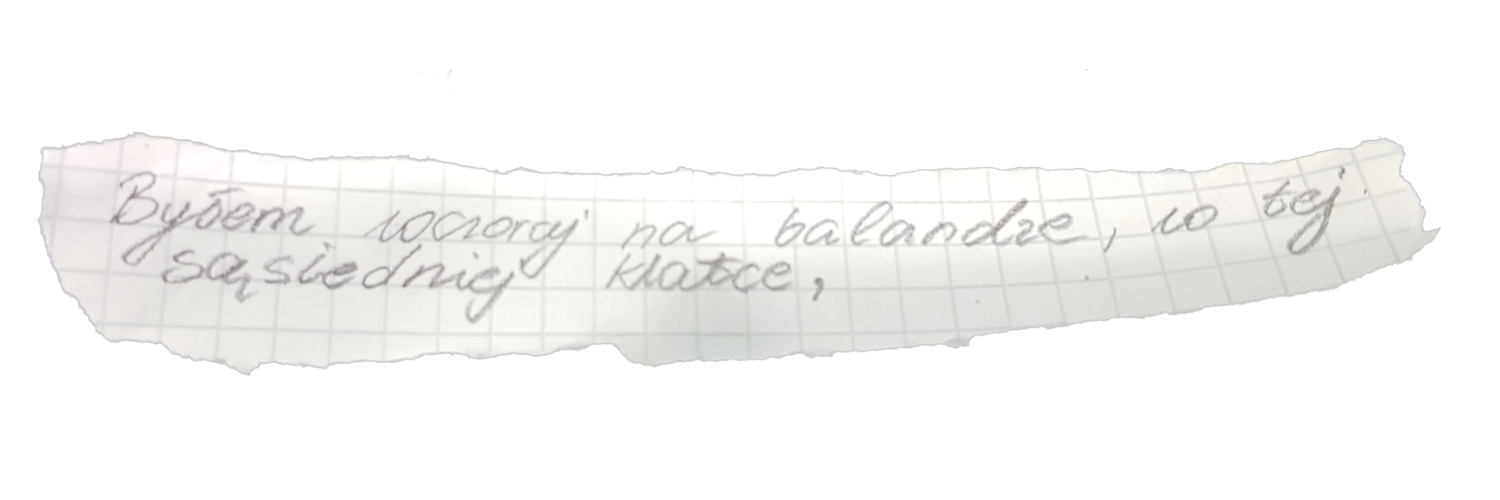 Byłem wczoraj na balandze, w tej
sąsiedniej klatce,